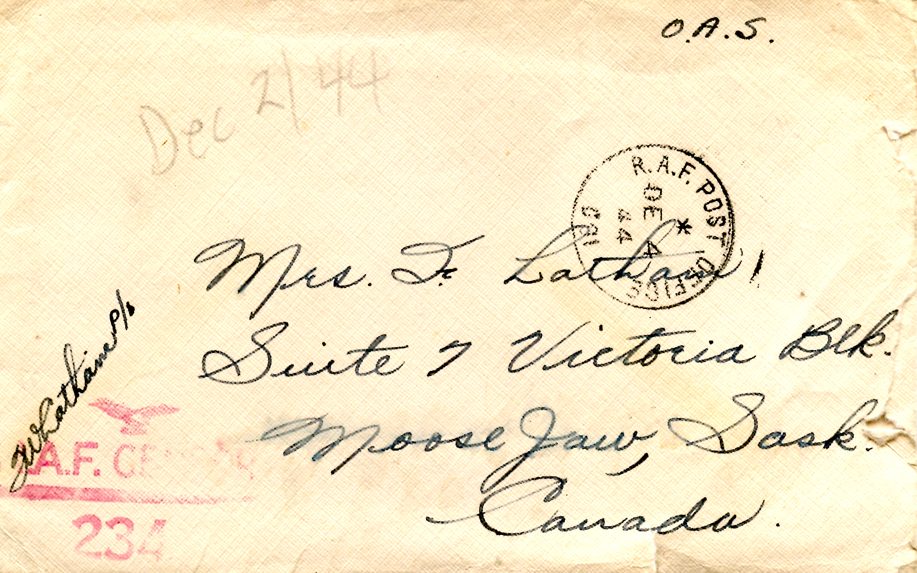 O.A.S.
Dec 2/44
R.A.F. POST OFFICE
DE 4
44
Mrs. F. Latham
Suite 7 Victoria Blk.
Moose Jaw, Sask.
Canada.
FW Latham P/O
R.A.F. CENSOR
234